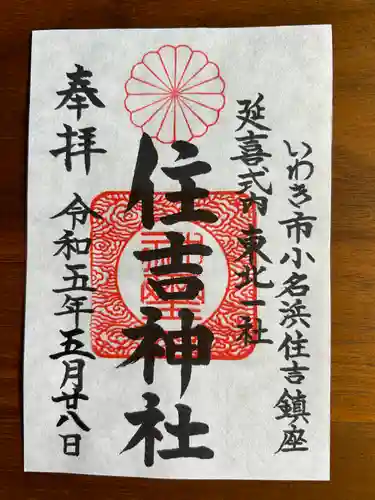 いわき市小名浜住吉鎮座
延喜式内 東北一社
住吉神社
奉拝
令和五年五月廿八日